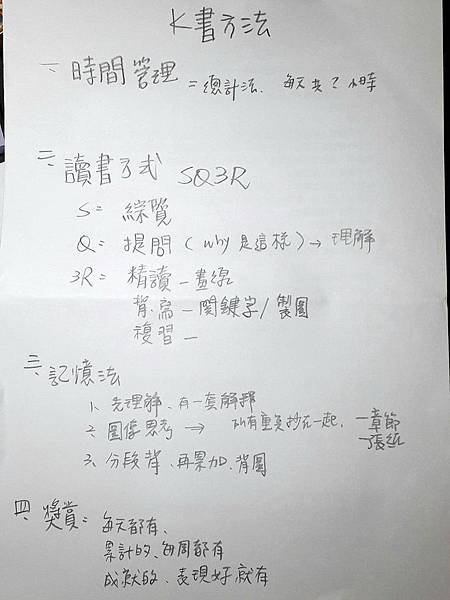 K書方法
一、時間管理 = 總計法、每天共2小時
二、讀書方式 SQ3R
S= 綜覽
Q= 提問(why是這樣)→理解
3R= 精讀—畫線
背寫—關鍵字/製圖
複習—
三、記憶法
1、先理解、有一套解釋
2、圖像思考 → 所有重點抄在一起、一章節一張紙
3、分段背、再累加、背圖
四、獎賞: 每天都有、
累計的、每周都有
成就的、表現好就有